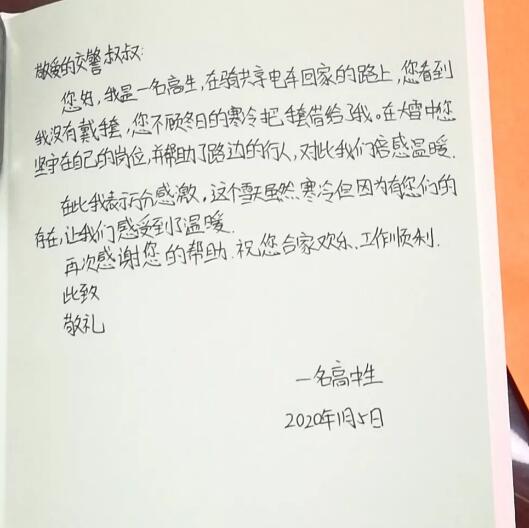 敬爱的交警叔叔:
您好,我是一名高生,在骑共享电车回家的路上,您看到
我没有戴手套,您不顾冬日的寒冷把手套借给了我。在大雪中您
坚守在自己的岗位,并帮助了路边的行人,对此我们倍感温暖.
在此我表示万分感激,这个雪天虽然寒冷但因为有您们的
存在,让我们感受到了温暖.
再次感谢您的帮助.祝您合家欢乐、工作顺利.
此致
敬礼
一名高中生
2020年1月5日